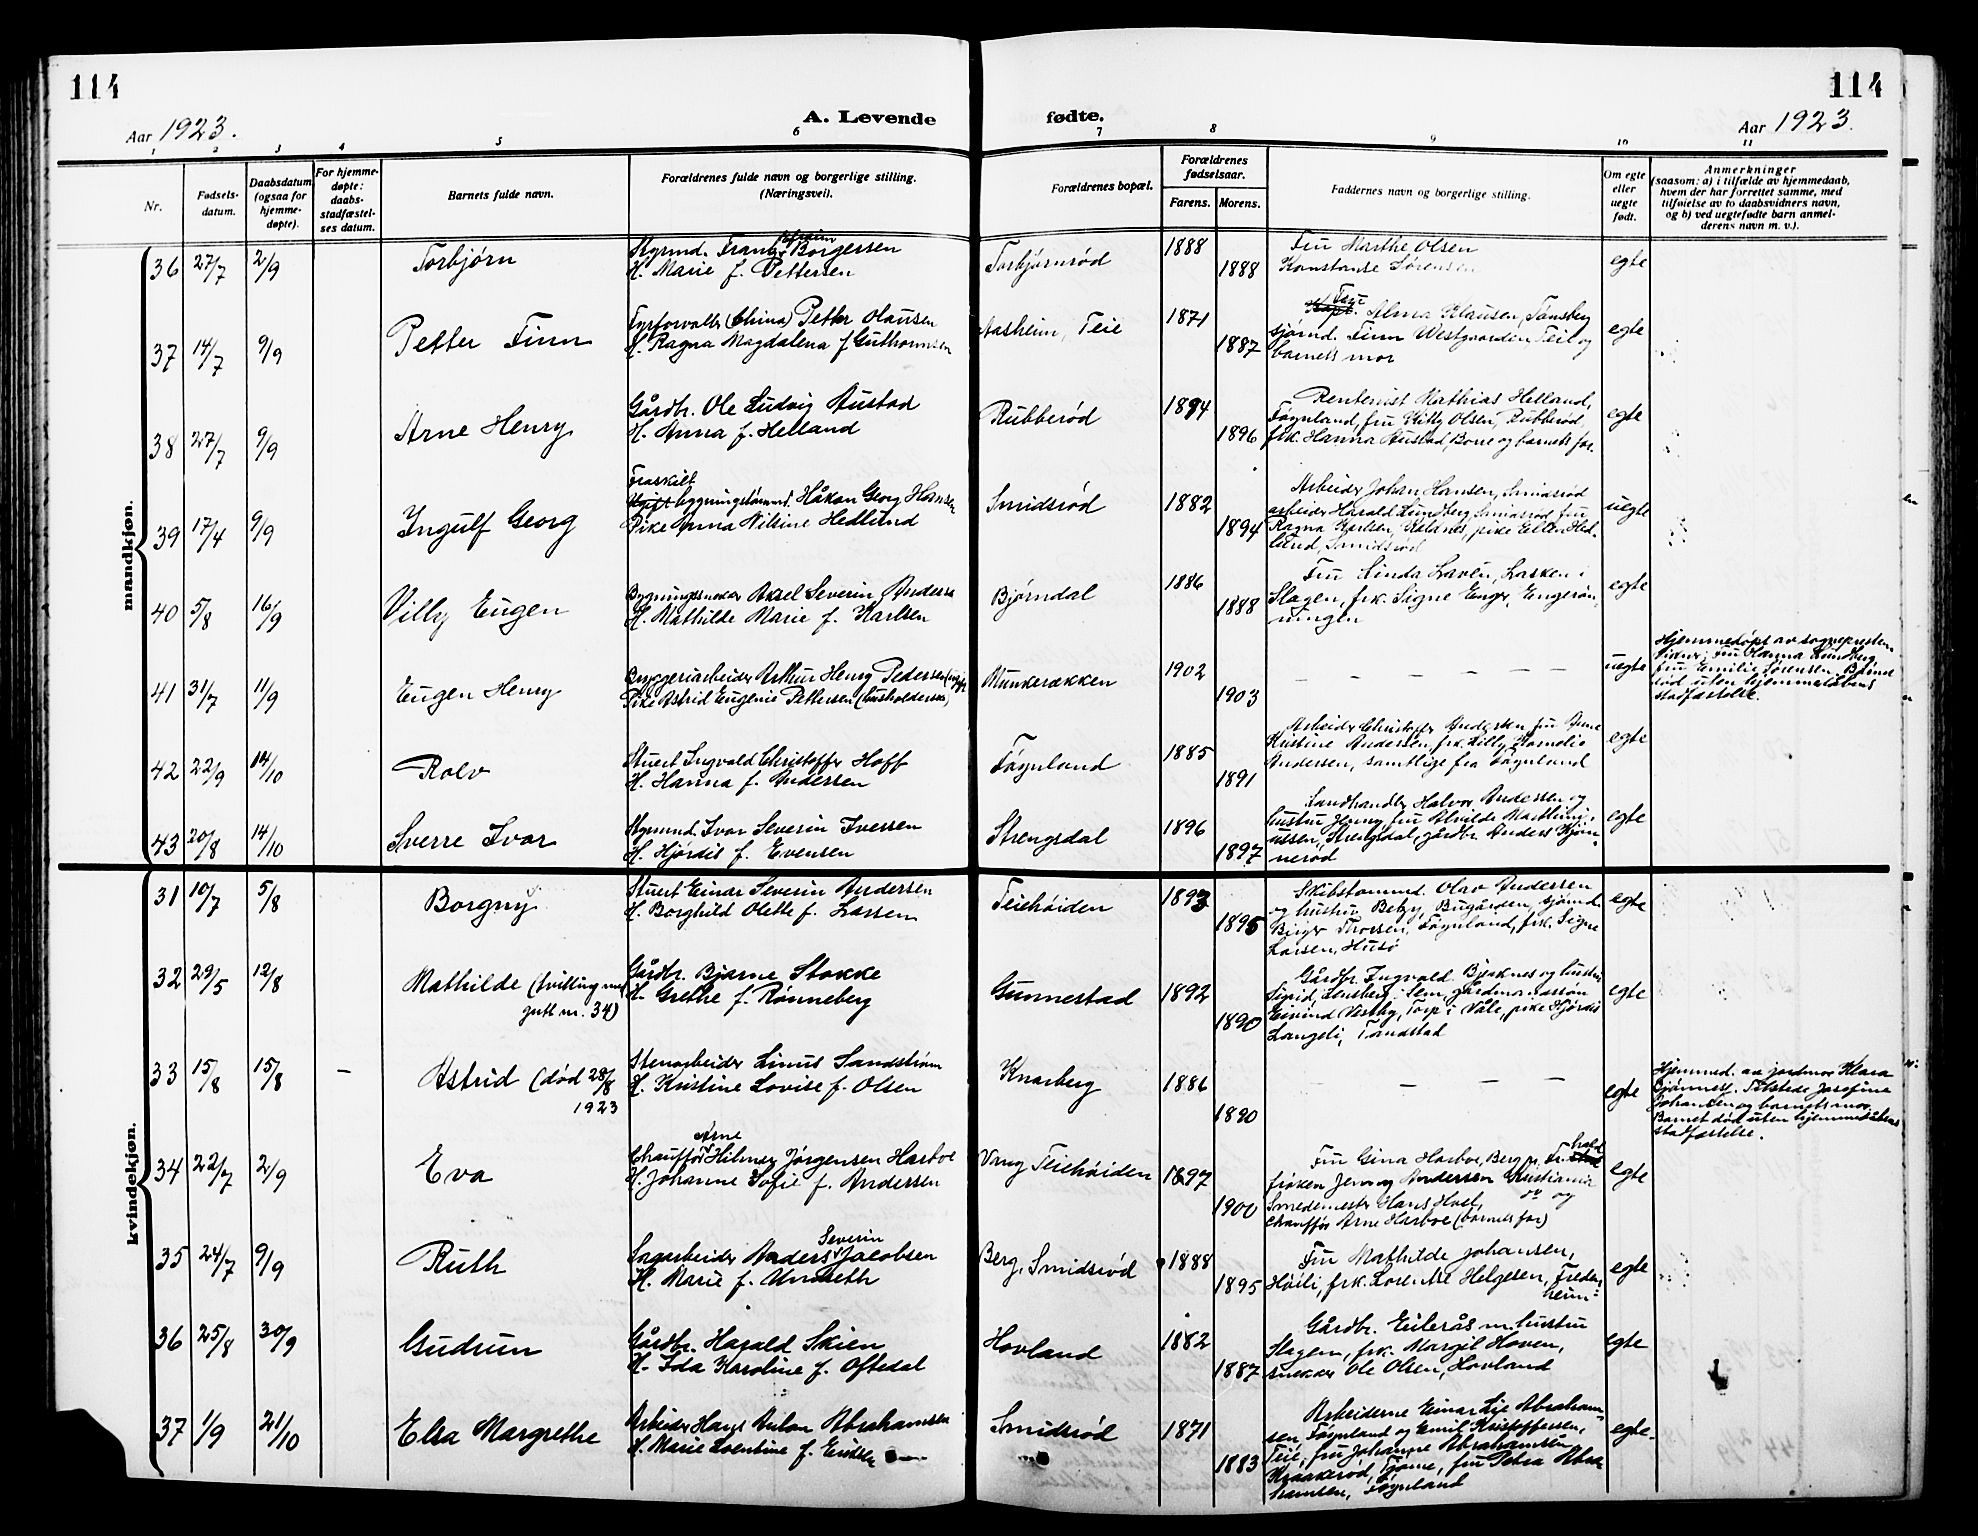 114
114
Aar 1923.
A. Levende
fødte.
Aar 1923.
1 2 3 4 5 6 7 8 9 10 11
Nr.
Fødsels-
datum.
Daabsdatum
(ogsaa for
hjemme-
døpte).
For hjemme-
døpte:
daabs-
stadfæstel-
ses datum.
Barnets fulde navn.
Forældrenes fulde navn og borgerlige stilling.
(Næringsvei).
Forældrenes bopæl.
Forældrenes
fødselsaar.
Farens. Morens.
Faddernes navn og borgerlige stilling.
Om egte
eller
uegte
født.
Anmerkninger
(saasom: a) i tilfælde av hjemmedaab,
hvem der har forrettet samme, med
tilføielse av to daabsvidners navn,
og b) ved uegtefødte barn anmel-
derens navn m. v.).
mandkjøn.
36 27/7 2/9 Torbjørn
Styrmd. Frantz Efraim Borgersen
H. Marie f. Pettersen
Torbjørnsrød 1888 1888
Fru Marthe Olsen
Konstanse Sørensen
egte
37 14/7 9/9 Petter Finn
Fyrforvalter (China) Petter Olausen
H. Ragna Magdalena f. Guthormsen
Aasheim, Teie 1871 1887
Fru Alma Klausen, Tønsberg
sjømd. Finn Westgaarden Teie og
barnets mor
egte
38 27/7 9/9 Arne Henry
Gårdbr. Ole Ludvig Austad
H. Anna f. Helland
Rubberød 1894 1896
Rentenist Mathias Helland,
Føynland, fru Kitty Olsen, Rubberød,
frk. Hanna Austad, Borre og barnets far.
egte
39 17/4 9/9 Ingulf Georg
Fraskilt
bygningstømmd. Håkon Georg Hansen
Pike Anna Nilsine Hedlund
Smidsrød 1882 1894
Arbeider Johan Hansen, Smidsrød
arbeider Harald Lundberg Smidsrød fru
Ragna Karlsen, pike Ellen Hed-
lund, Smidsrød
uegte
40 5/8 16/9 Villy Eugen
Bygningssnekker Aksel Severin Anderse
H. Mathilde Marie f. Karlsen
Bjørndal 1886 1888
Fru Linda Lavén, Lasken i
Slagen, frk. Signe Enger, Engerøn-
ningen
egte
41 31/7 11/9 Eugen Henry
Bryggeriarbeider Arthur Henry Pedersen (ugift)
Pike Astrid Eugenie Pettersen (husholderske)
Munkerækken 1902 1903
– – – –
uegte
Hjemmedøpt av sognepresten
Vidner: Fru Hanna Lundberg
fru Emilie Sørensen. Barnet
død uten hjemmedåbens
stadfæstelse.
42 22/9 14/10 Rolv
Stuert Ingvald Christoffer Hoff
H. Hanna f. Andersen
Føynland 1885 1891
Arbeider Christoffer Andersen fru Anne
Kristine Andersen, frk. Lilly Kornelie
Andersen, samtlige fra Føynland
egte
43 20/8 14/10 Sverre Ivar
Styrmd. Ivar Severin Iversen
H. Hjørdis f. Evensen
Strengsdal 1896 1897
Landhandler Halvor Andersen og
hustru Jenny, fru Alvilde Marthini-
ussen, Strengsdal, gårdbr. Anders Bjøn-
nerød
egte
kvindekjøn.
31 10/7 5/8 Borgny
Stuert Einar Severin Andersen
H. Borghild Olette f. Larsen
Teiehøiden 1893 1895
Skibstømmd. Olav Andersen
og hustru Betzy, Bugården, sjømd.
Birger Thorsen, Føynland, frk. Signe
Larsen, Husø
egte
32 29/5 12/8 Mathilde (tvilling med
gutt nr. 34)
Gårdbr. Bjarne Stokke
H. Grethe f. Rønneberg
Gunnestad 1892 1890
Gårdbr. Ingvald Bjerknes og hustru
Sigrid, Lensberg i Sem, gårdmandssøn
Eivind Vestby, Torp i Våle, pike Hjørdis
Langeli, Tandstad
egte
33 15/8 15/8 – Astrid (død 28/8
1923
Stenarbeider Linus Sandstrøm
H. Kristine Lovise f. Olsen
Knarberg 1886 1890
– – – –
egte
Hjemmed. av jordmor Klara
Bjønnes. Tilstede Josefine
Johansen og barnets mor.
Barnet død uten hjemmedåbens
stadfæstelse.
34 22/7 2/9 Eva
Chauffør Arne Hilmar Jørgensen Harboe
H. Johanne Sofie f. Andersen
Vang Teiehøiden 1897 1900
Fru Gina Harboe, Berg pr. Fr.hald
frøken Jenny Andersen Kristiania
Smedemester Hans Hoel, og
chauffør Arne Harboe (barnets far)
egte
35 24/7 9/9 Ruth
Sagarbeider Anders Severin Jacobsen
H. Marie f. Unneseth
Berg, Smidsrød 1888 1895
Fru Mathilde Johansen,
Høili, frk. Lorentse Helgesen, Freden-
heim
egte
36 25/8 30/9 Gudrun
Gårdbr. Harald Skien
H. Ida Karoline f. Oftedal
Hovland 1882 1887
Gårdbr. Eilerås m. hustru
Slagen, frk. Margit Hoven,
snekker Ole Olsen, Hovland
egte
37 1/9 21/10 Elsa Margrethe
Arbeider Hans Anton Abrahamsen
H. Marie Lventine f. Eriksen
Smidsrød 1871 1883
Arbeiderne Einar Lie Abraham-
sen Føynland og Emil Kristoffersen,
Teie, fru Johanne Abrahamsen
Kraakerød, Tjøme, fru Petra Abra-
hamsen, Føynland
egte